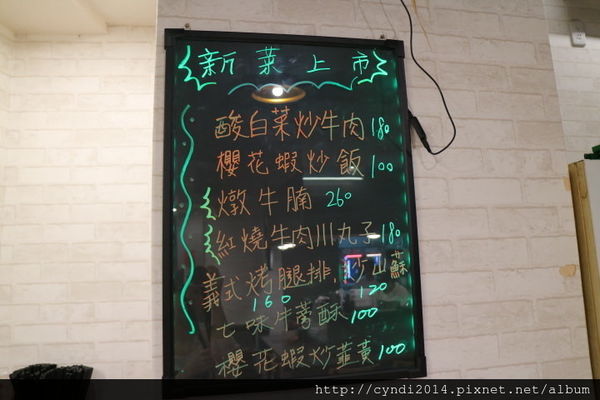 新菜上市
酸白菜炒牛肉180
櫻花蝦炒飯100
燉牛腩 260
紅燒牛肉川丸子180
義式烤腿排,炒山蘇
160 120
七味牛蒡酥100
櫻花蝦炒韮黃100
http://cyndi2014.pixnet.net/album